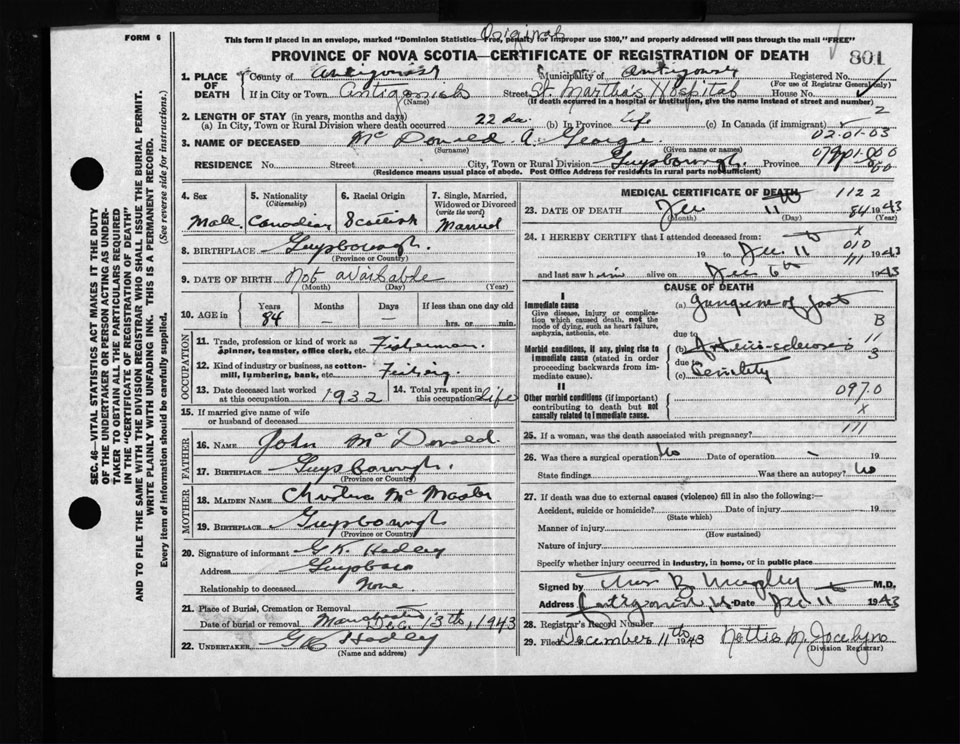 FORM 6
This form if placed in an envelope, marked "Dominion Statistics Free, penalty for improper use $300," and properly addressed will pass through the mail "FREE"
Original
PROVINCE OF NOVA SCOTIA—CERTIFICATE OF REGISTRATION OF DEATH
801
1. PLACE OF DEATH County of Antigonish Municipality of Antigonish Registered No.
(For use of Registrar General only)
If in City or Town Antigonish Street St. Martha's Hospital House No.
(Name) (If death occurred in a hospital or institution, give the name instead of street and number)
2. LENGTH OF STAY (in years, months and days)
(a) In City, Town or Rural Division where death occurred 22 da. (b) In Province Life (c) In Canada (if immigrant) 2
02-01-03
3. NAME OF DECEASED McDonald A. George
(Surname) (Given name or names)
RESIDENCE No. Street City, Town or Rural Division Guysborough. Province
(Residence means usual place of abode. Post Office Address for residents in rural parts not sufficient)
4. Sex Male
5. Nationality (Citizenship) Canadian
6. Racial Origin Scottish
7. Single, Married, Widowed or Divorced (write the word) Married
8. BIRTHPLACE Guysborough.
(Province or Country)
9. DATE OF BIRTH Not available
(Month) (Day) (Year)
10. AGE in Years 84 Months — Days — If less than one day old hrs. or min.
OCCUPATION
11. Trade, profession or kind of work as spinner, teamster, office clerk, etc. Fisherman.
12. Kind of industry or business, as cotton-mill, lumbering, bank, etc. Fishing
13. Date deceased last worked at this occupation 1932
14. Total yrs. spent in this occupation Life
15. If married give name of wife or husband of deceased
FATHER
16. NAME John McDonald.
17. BIRTHPLACE Guysborough.
(Province or Country)
MOTHER
18. MAIDEN NAME McMaster
19. BIRTHPLACE Guysborough
(Province or Country)
20. Signature of informant G.K. Hadley
Address Guysboro
Relationship to deceased None
21. Place of Burial, Cremation or Removal Manchester
Date of burial or removal Dec. 13th, 1943
22. UNDERTAKER GK Hadley
(Name and address)
MEDICAL CERTIFICATE OF DEATH
1122
23. DATE OF DEATH Dec 11 84 1943
(Month) (Day) (Year)
24. I HEREBY CERTIFY that I attended deceased from:
x
010
19 to Dec 11 1943
111
and last saw him alive on Dec 6th 1943
CAUSE OF DEATH
I
Immediate cause
Give disease, injury or complication which caused death, not the mode of dying, such as heart failure, asphyxia, asthenia, etc.
(a) gangrene of foot
B
due to 11
Morbid conditions, if any, giving rise to immediate cause (stated in order proceeding backwards from immediate cause).
(b) Arterio-sclerosis
3
due to
(c) Senility
II
Other morbid conditions (if important) contributing to death but not causally related to immediate cause.
097.0
x
111
25. If a woman, was the death associated with pregnancy?
26. Was there a surgical operation No Date of operation - 19
State findings Was there an autopsy? No
27. If death was due to external causes (violence) fill in also the following:—
Accident, suicide or homicide? Date of injury 19
(State which)
Manner of injury
(How sustained)
Nature of injury
Specify whether injury occurred in industry, in home, or in public place
Signed by M.D.
Address Antigonish, N.S. Date Dec 11 1943
28. Registrar's Record Number
29. Filed December 11th 1943 Nettie M. Jocelyn
(Division Registrar)
SEC. 46—VITAL STATISTICS ACT MAKES IT THE DUTY OF THE UNDERTAKER OR PERSON ACTING AS UNDERTAKER TO OBTAIN ALL THE PARTICULARS REQUIRED IN THE "CERTIFICATE OF REGISTRATION OF DEATH" AND TO FILE THE SAME WITH THE DIVISION REGISTRAR WHO SHALL ISSUE THE BURIAL PERMIT.
WRITE PLAINLY WITH UNFADING INK. THIS IS A PERMANENT RECORD.
Every item of information should be carefully supplied. (See reverse side for instructions.)